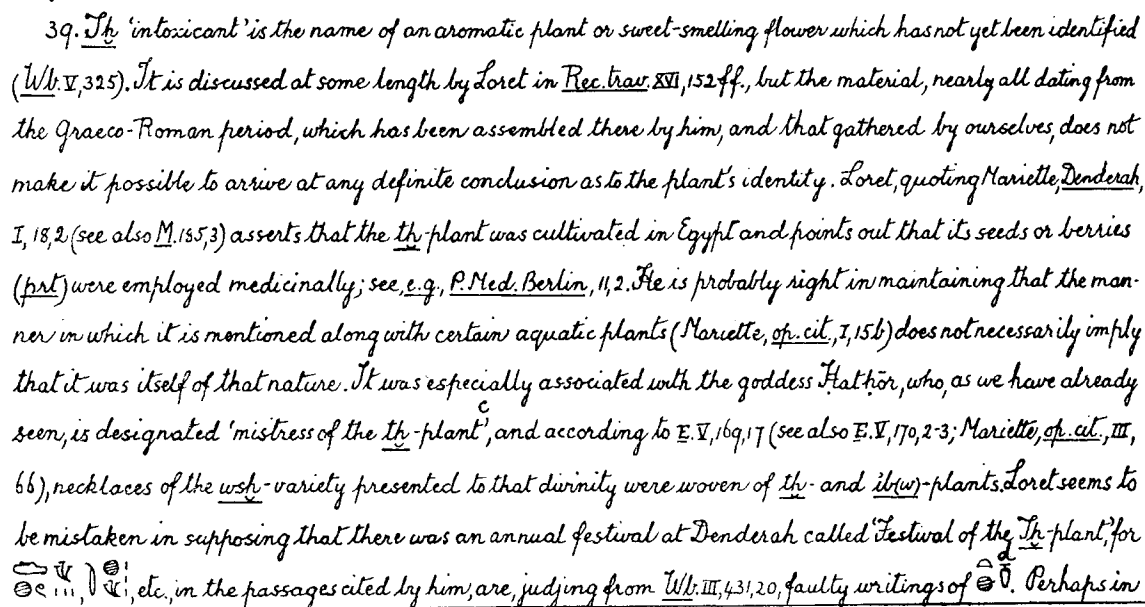 39. Tḫ 'intoxicant' is the name of an aromatic plant or sweet-smelling flower which has not yet been identified
(Wb. V, 325). It is discussed at some length by Loret in Rec. trav. XVI, 152 ff., but the material, nearly all dating from
the Graeco-Roman period, which has been assembled there by him, and that gathered by ourselves, does not
make it possible to arrive at any definite conclusion as to the plant's identity. Loret, quoting Mariette, Denderah,
I, 18, 2 (see also M. 185, 3) asserts that the tḫ-plant was cultivated in Egypt and points out that its seeds or berries
(prt) were employed medicinally; see, e.g., P. Med. Berlin, 11, 2. He is probably right in maintaining that the man-
ner in which it is mentioned along with certain aquatic plants (Mariette, op. cit., I, 15b) does not necessarily imply
that it was itself of that nature. It was especially associated with the goddess Ḥatḥōr, who, as we have already
seen, is designated 'mistress of the tḫ-plant'ᶜ, and according to E. V, 169, 17 (see also E. V, 170, 2-3; Mariette, op. cit., III,
66), necklaces of the wsḫ-variety presented to that divinity were woven of tḫ- and ib(w)-plants. Loret seems to
be mistaken in supposing that there was an annual festival at Denderah called 'Festival of the Tḫ-plant', for
etc., in the passages cited by him, are, judging from Wb. III, 431, 20, faulty writings of ᵈ. Perhaps in